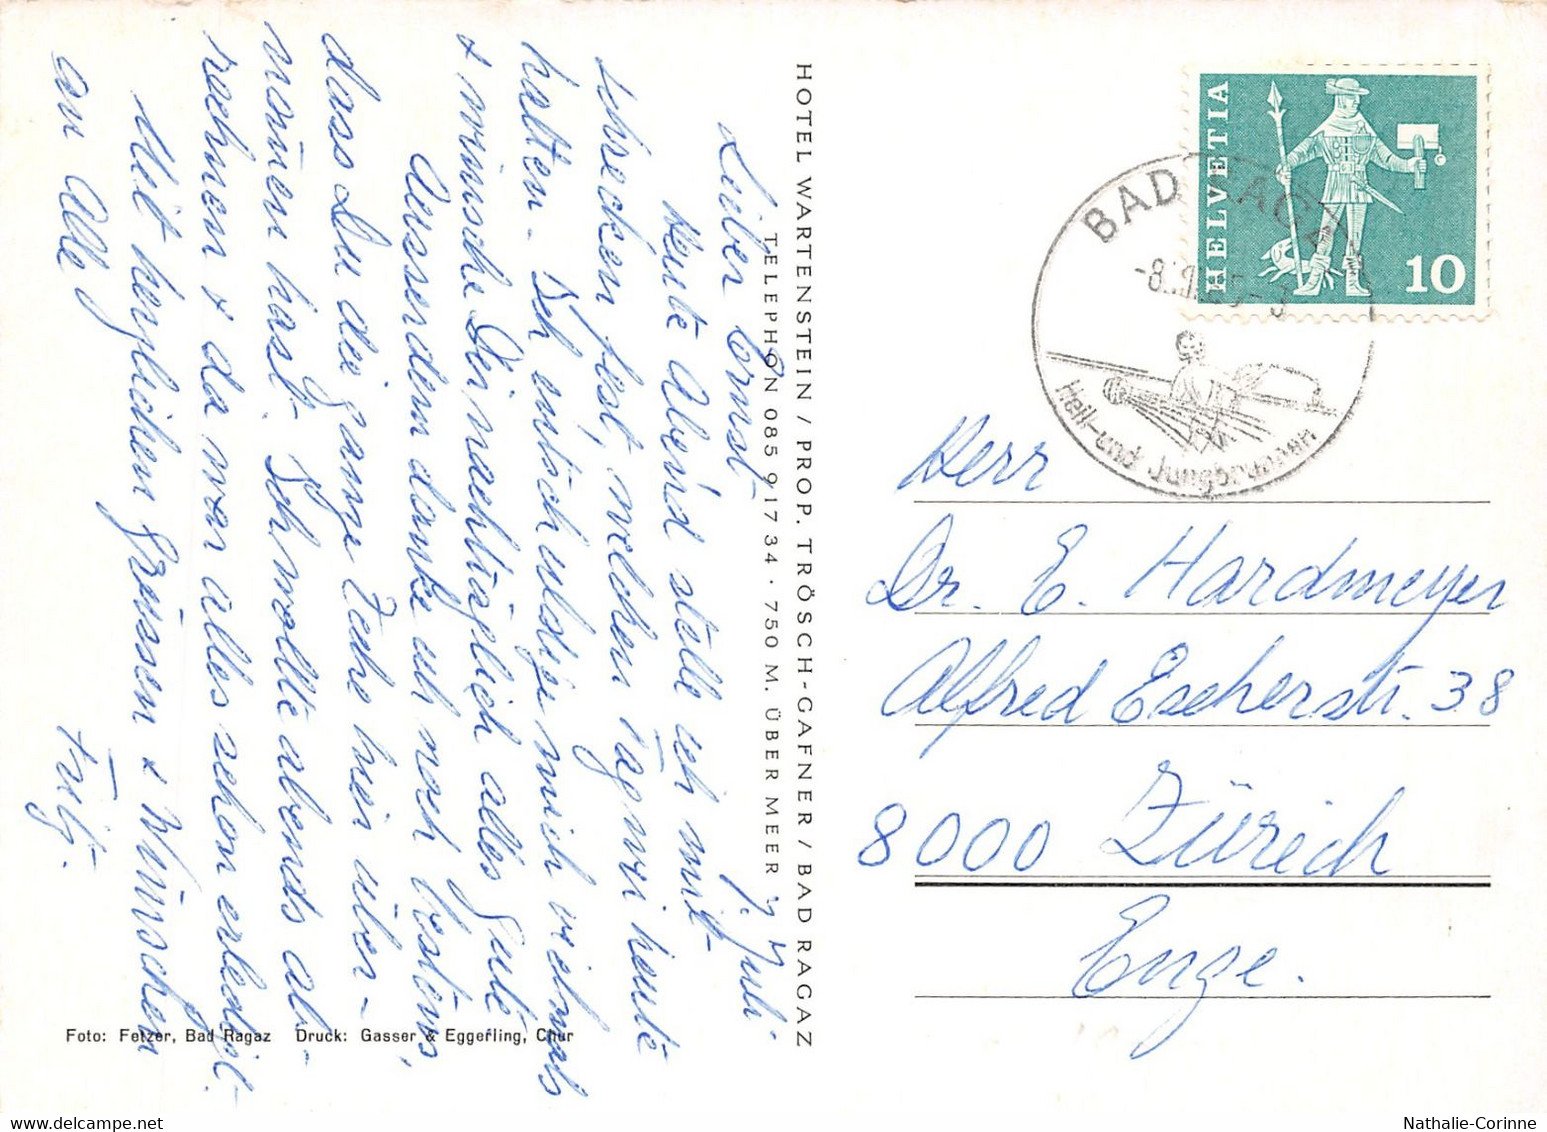 7. Juli
Lieber Ernst
Heute Abend stelle ich mit
schrecken fest, welchen Tag wir heute
halten. Ich entschuldige mich vielmals
& wünsche Dir nachträglich alles gute
Ausserdem danke ich noch bestens,
dass Du die ganze Zeche hier über-
nommen hast. Ich wollte abends ab-
rechnen & da war alles schon erledigt.
Mit herzlichen Grüssen & Wünschen
an Alle
HOTEL WARTENSTEIN / PROP. TRÖSCH-GAFNER / BAD RAGAZ
TELEPHON 085 9 17 34 · 750 M. ÜBER MEER
Foto: Fetzer, Bad Ragaz Druck: Gasser & Eggerling, Chur
HELVETIA
10
BAD RAGAZ
Heil- und Jungbrunnen
Herr
Dr. E. Hardmeyer
Alfred Escherstr. 38
8000 Zürich
Enge.
Nathalie-Corinne